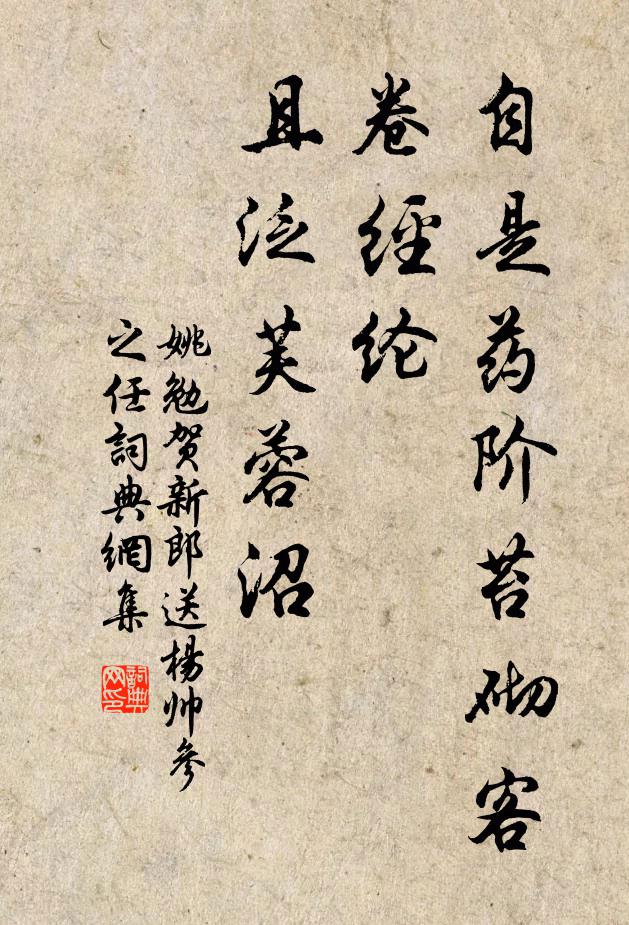 自是药阶苔砌客
卷經纶
且泛芙蓉沼
姚勉贺新郎送楊帅參
之任詞典網集
詞典网印